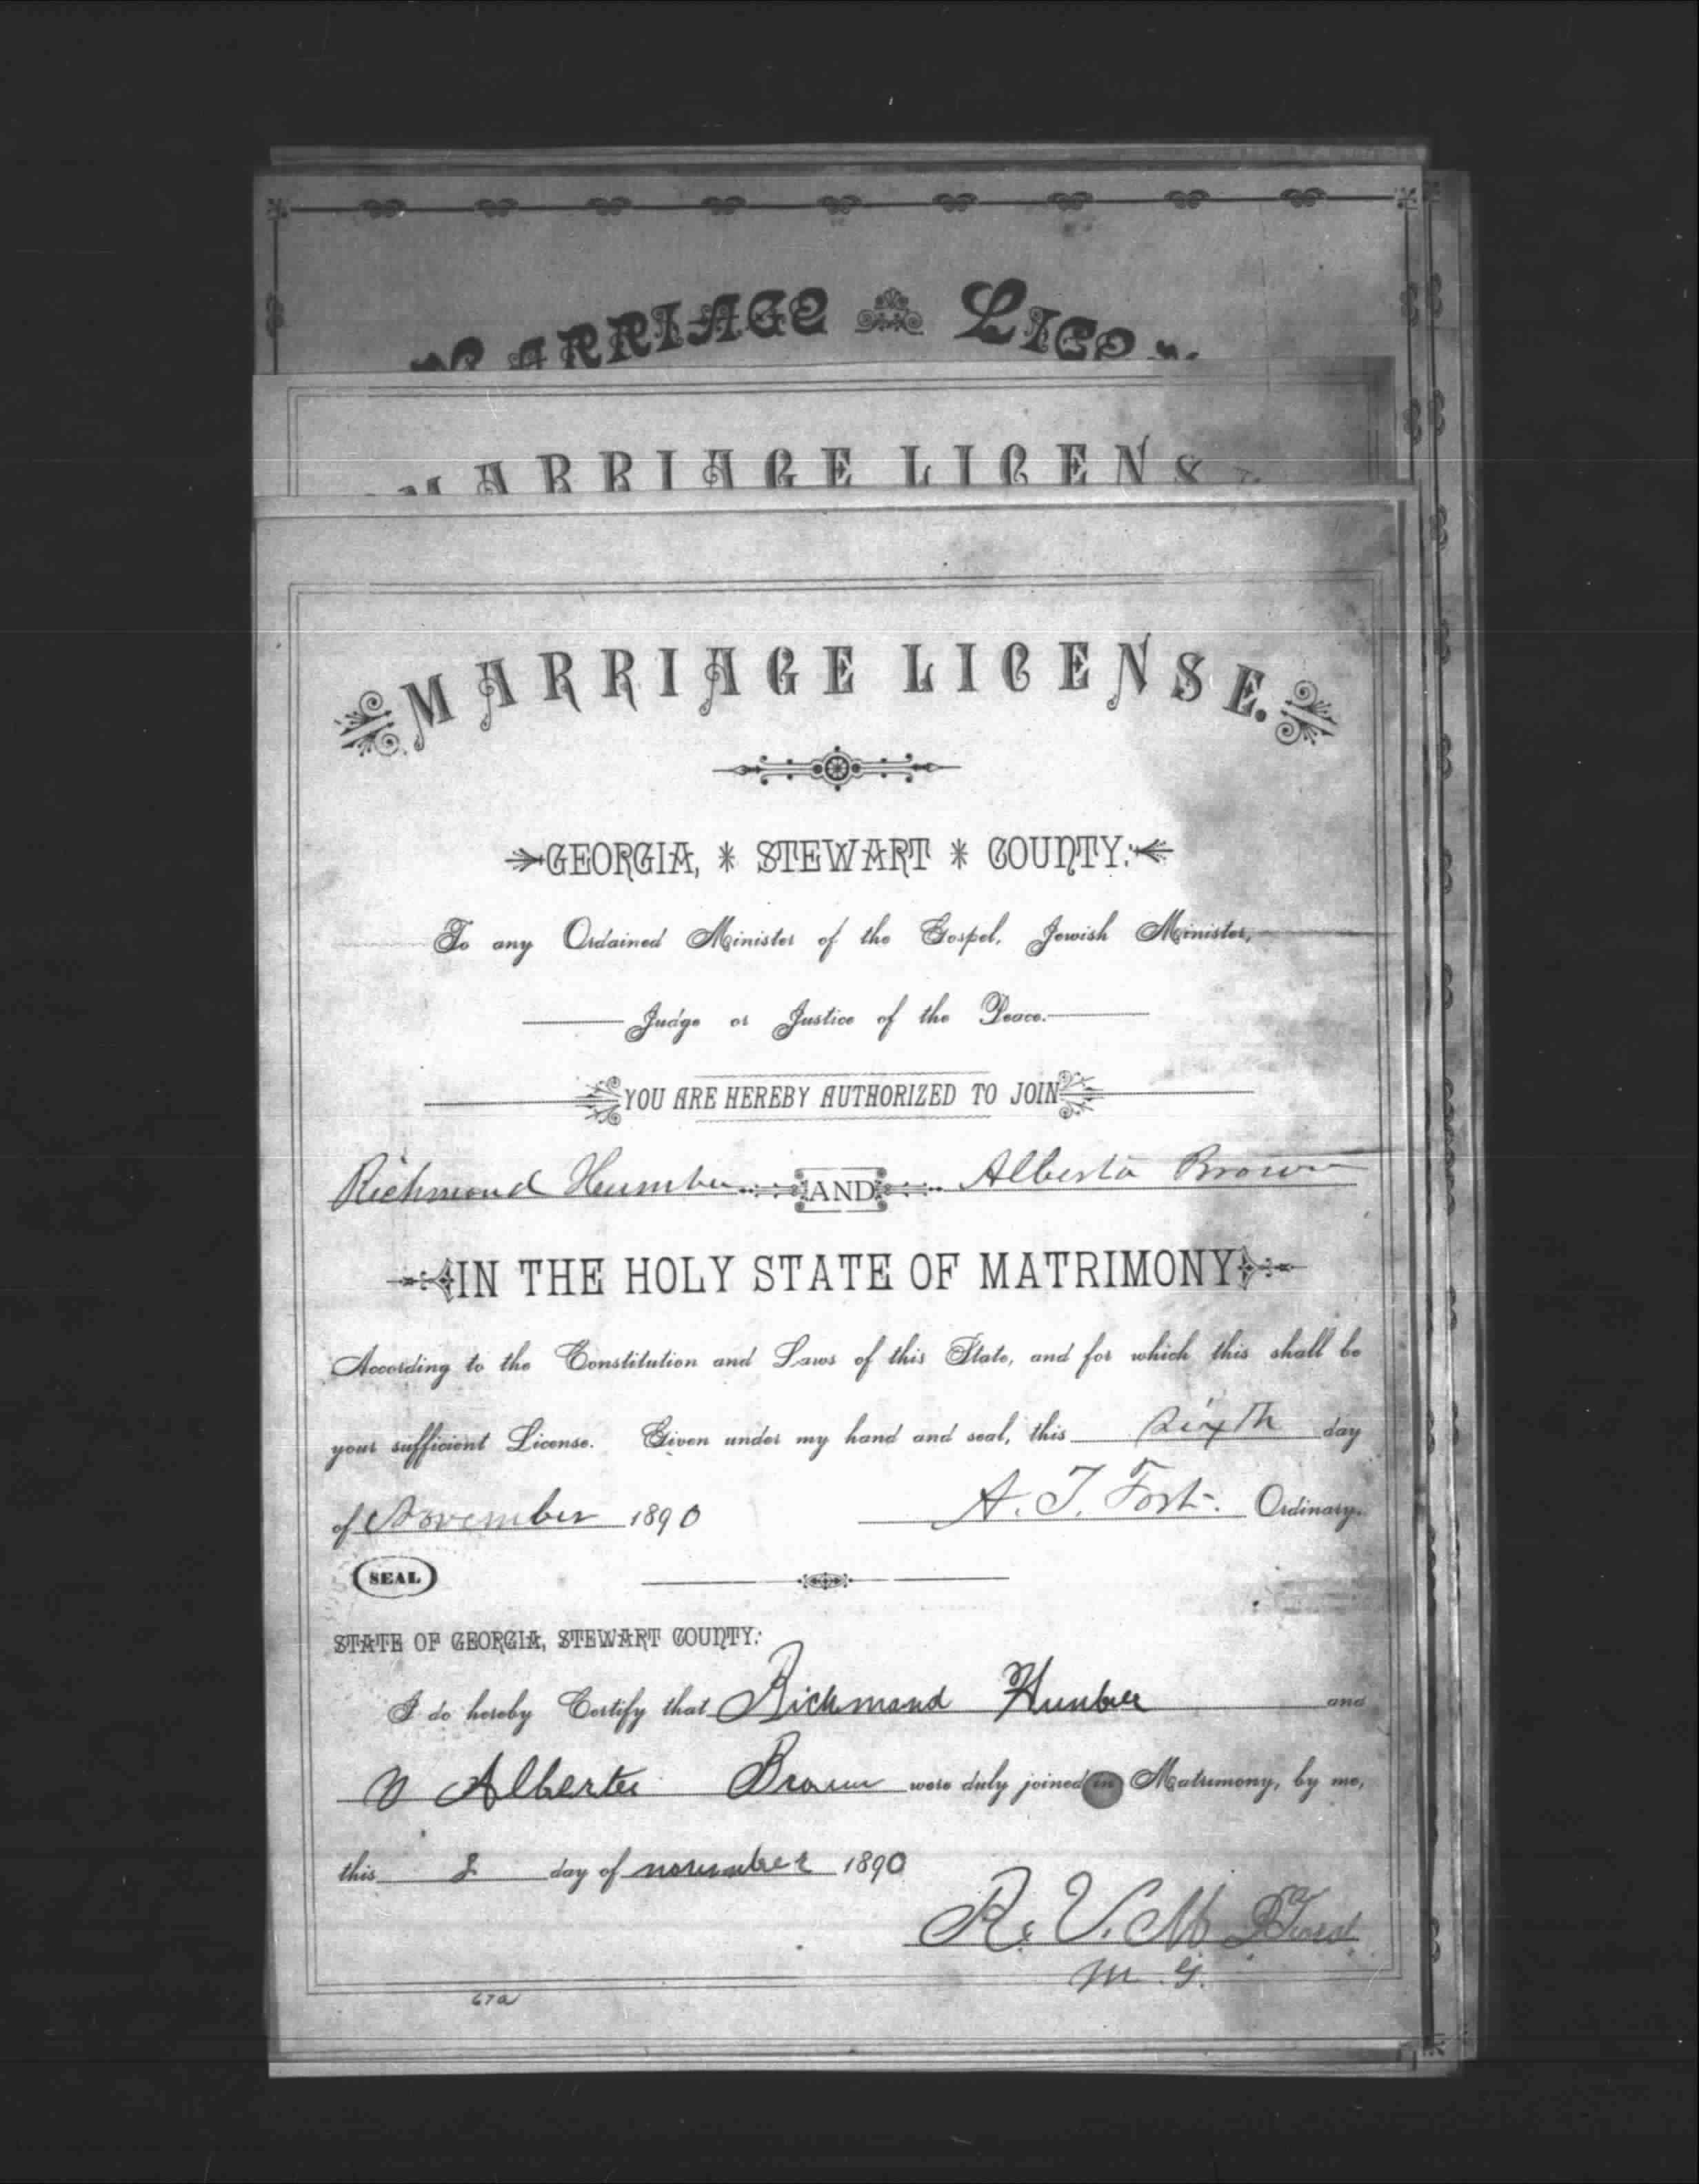 MARRIAGE LICE
MARRIAGE LICENS
MARRIAGE LICENSE.
GEORGIA, * STEWART * COUNTY:
To any Ordained Minister of the Gospel, Jewish Minister,
Judge or Justice of the Peace.
YOU ARE HEREBY AUTHORIZED TO JOIN
Richmond Humber AND Alberta Brown
IN THE HOLY STATE OF MATRIMONY
According to the Constitution and Laws of this State, and for which this shall be
your sufficient License. Given under my hand and seal, this Sixth day
of November 1890 A. T. Fort. Ordinary.
SEAL
STATE OF GEORGIA, STEWART COUNTY:
I do hereby Certify that Richmond Humber and
Alberta Brown were duly joined in Matrimony, by me,
this day of november 1890
R. V. M
M. G.
67a